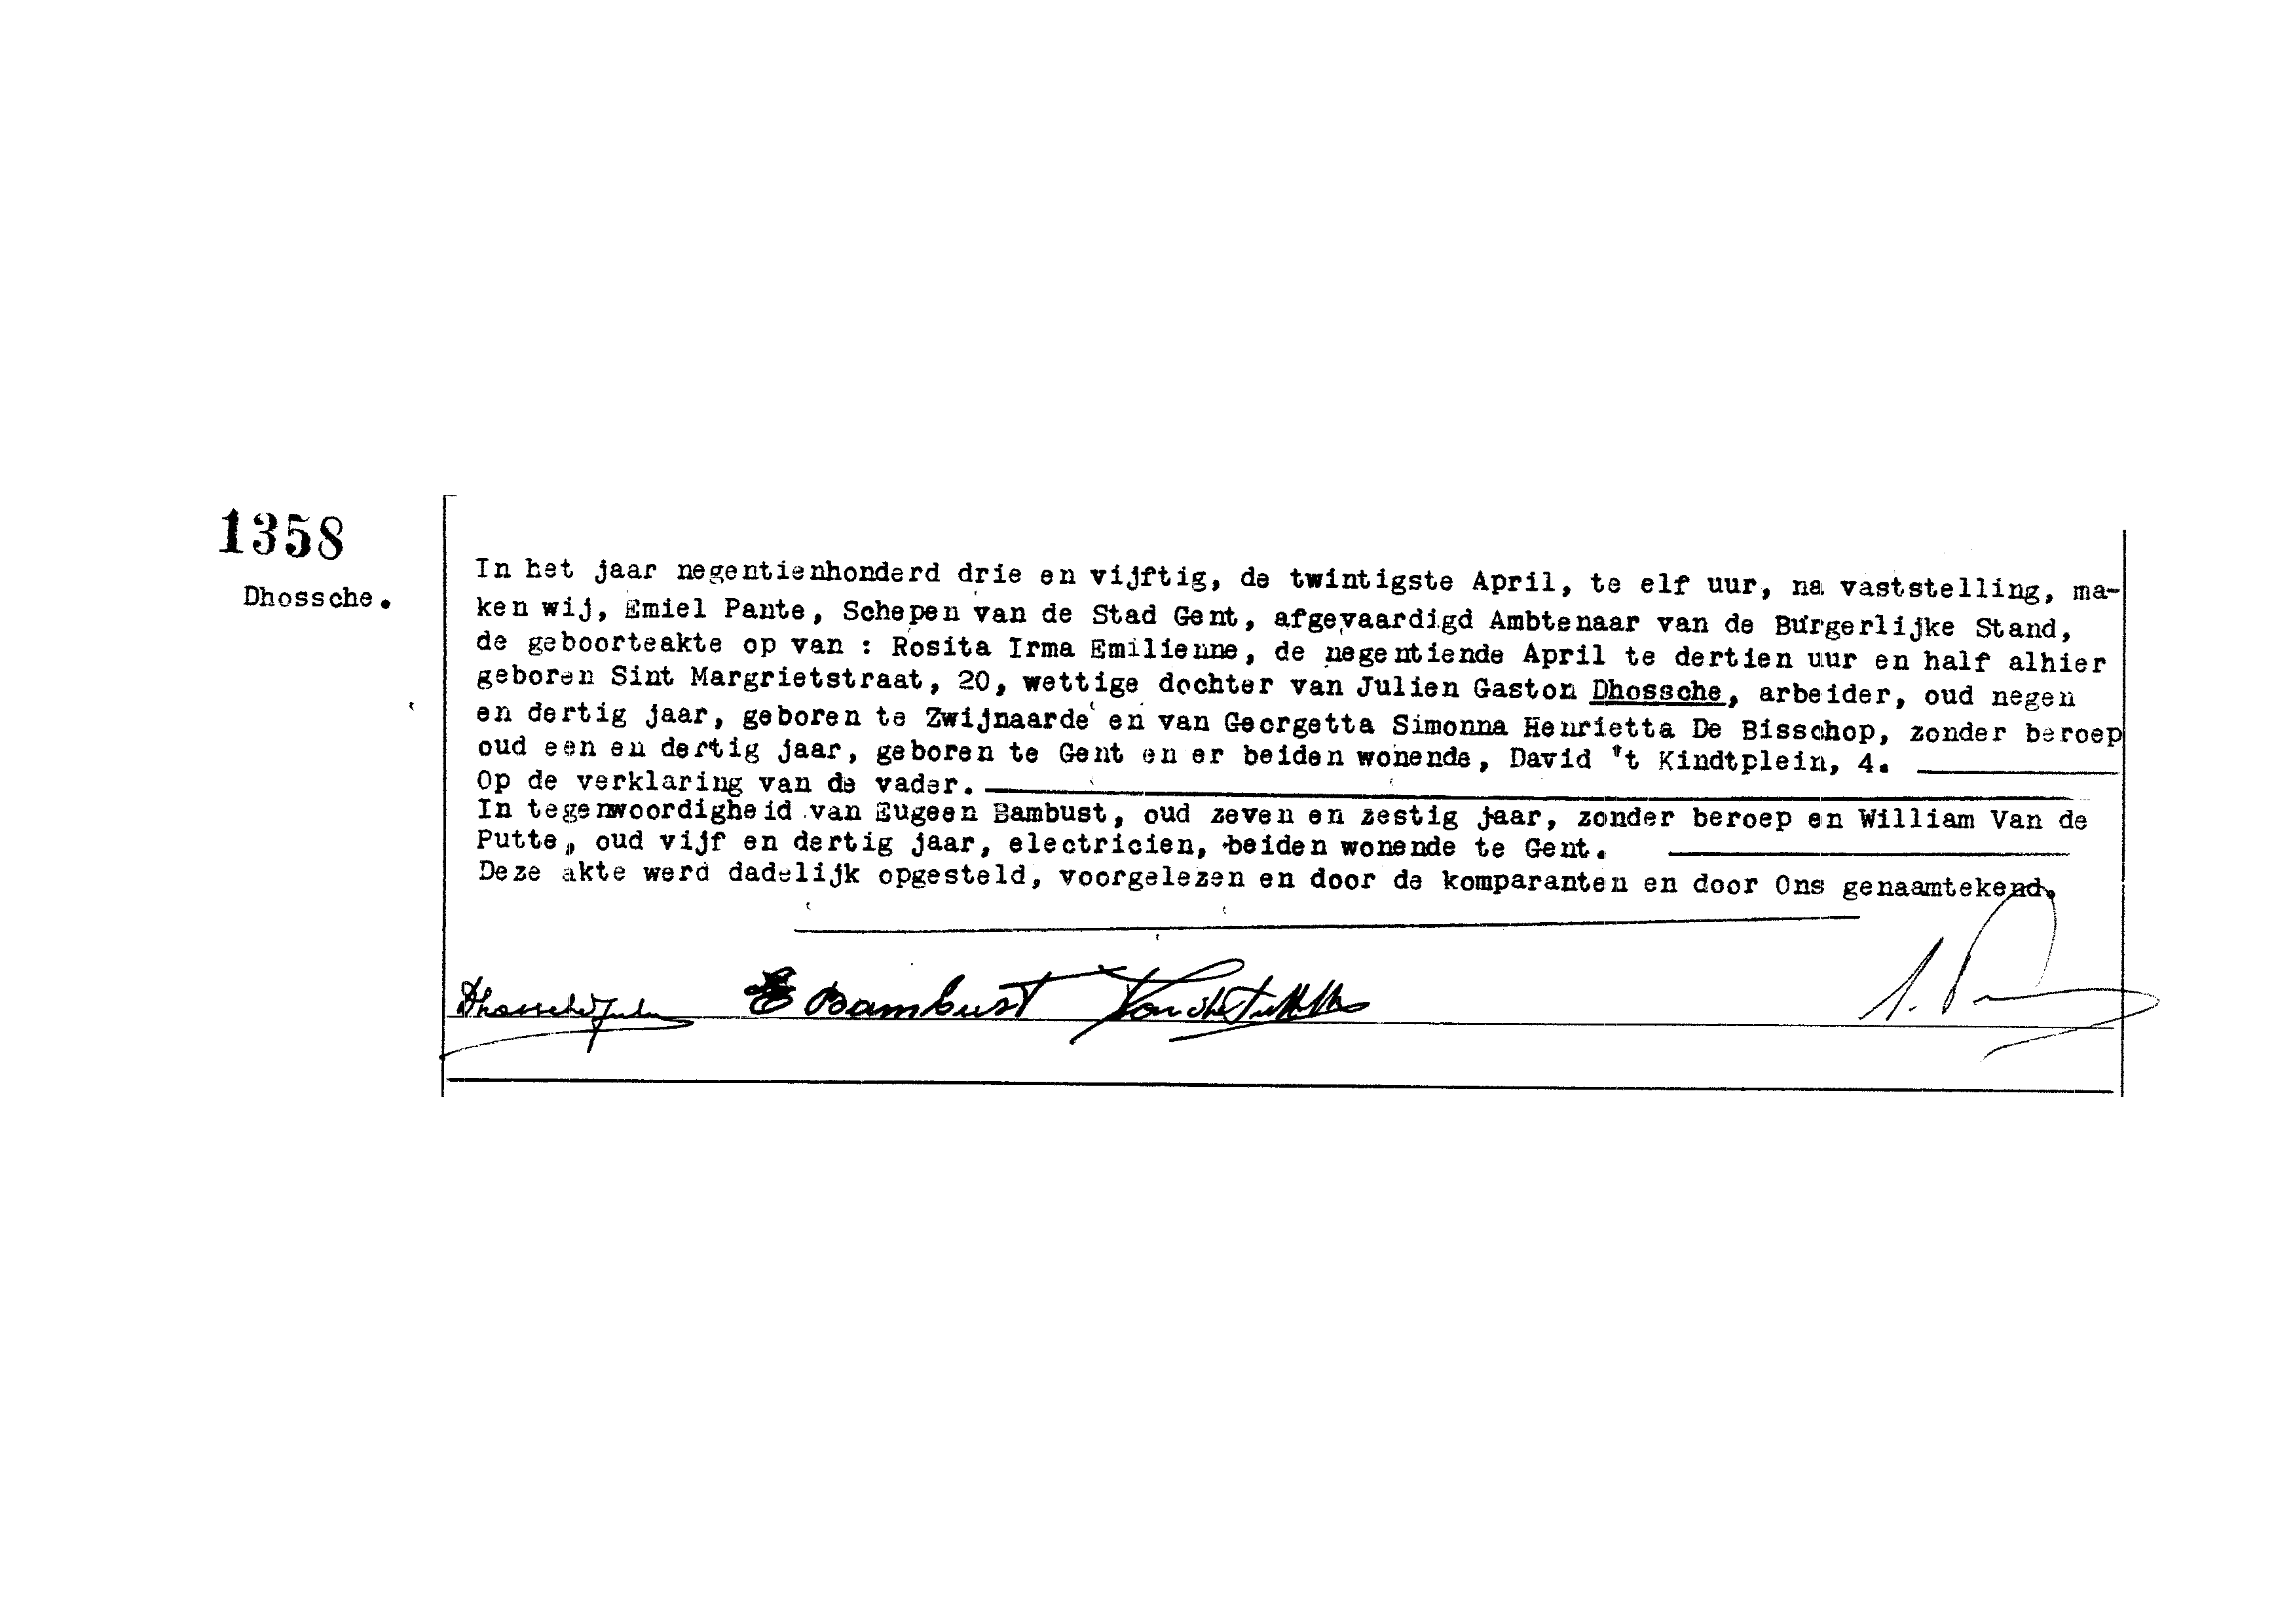 1358
Dhossche.
In het jaar negentienhonderd drie en vijftig, de twintigste April, te elf uur, na vaststelling, ma-
ken wij, Emiel Pante, Schepen van de Stad Gent, afgevaardigd Ambtenaar van de Burgerlijke Stand,
de geboorteakte op van : Rosita Irma Emilienne, de negentiende April te dertien uur en half alhier
geboren Sint Margrietstraat, 20, wettige dochter van Julien Gaston Dhossche, arbeider, oud negen
en dertig jaar, geboren te Zwijnaarde en van Georgetta Simonna Henrietta De Bisschop, zonder beroep
oud een en dertig jaar, geboren te Gent en er beiden wonende, David 't Kindtplein, 4.
Op de verklaring van de vader.
In tegenwoordigheid van Eugeen Bambust, oud zeven en zestig jaar, zonder beroep en William Van de
Putte, oud vijf en dertig jaar, electricien, beiden wonende te Gent.
Deze akte werd dadelijk opgesteld, voorgelezen en door de komparanten en door Ons genaamtekend.
Dhossche E Bambust